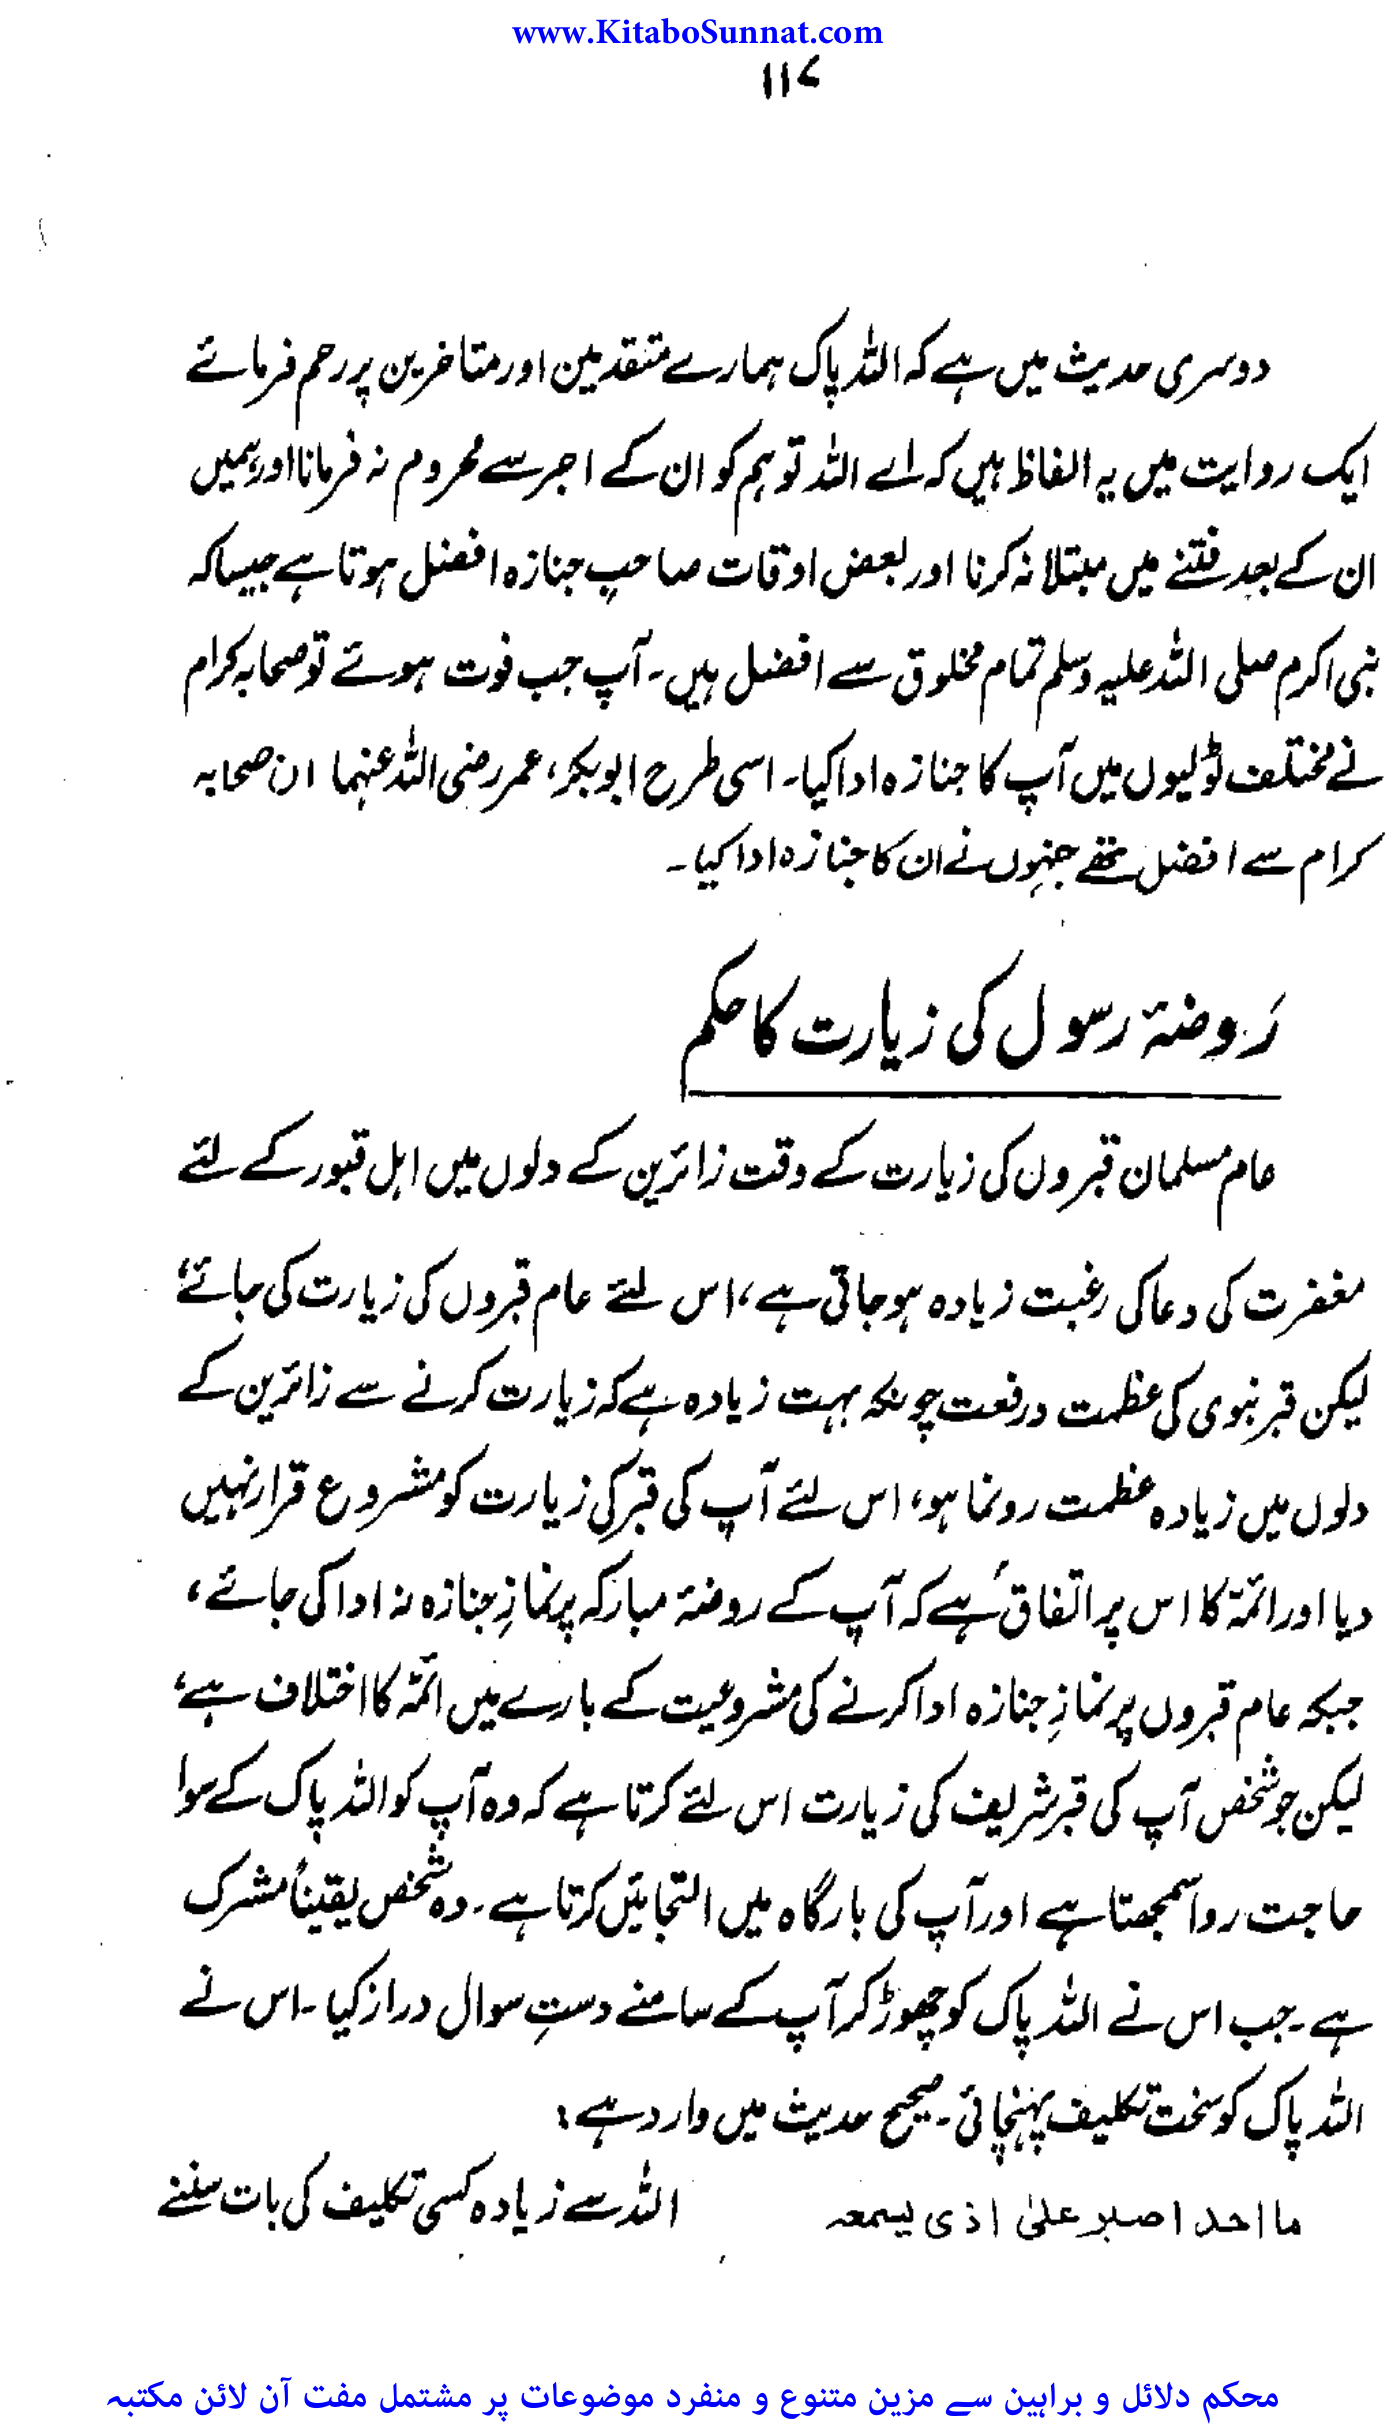 www.KitaboSunnat.com
۱۱۷
دوسری حدیث میں ہے کہ اللہ پاک ہمارے متقدمین اور متاخرین پر رحم فرمائے
ایک روایت میں یہ الفاظ ہیں کہ اے اللہ تو ہم کو ان کے اجر سے محروم نہ فرمانا اور ہمیں
ان کے بعد فتنے میں مبتلا نہ کرنا اور بعض اوقات صاحبِ جنازہ افضل ہوتا ہے جیسا کہ
نبی اکرم صلی اللہ علیہ وسلم تمام مخلوق سے افضل ہیں۔ آپ جب فوت ہوئے تو صحابہ کرام
نے مختلف ٹولیوں میں آپ کا جنازہ ادا کیا۔ اسی طرح ابوبکر، عمر رضی اللہ عنہما ان صحابہ
کرام سے افضل تھے جنہوں نے ان کا جنازہ ادا کیا۔
رَوضۂ رسول کی زیارت کا حکم
عام مسلمان قبروں کی زیارت کے وقت زائرین کے دلوں میں اہل قبور کے لئے
مغفرت کی دعا کی رغبت زیادہ ہو جاتی ہے، اس لئے عام قبروں کی زیارت کی جائے،
لیکن قبر نبوی کی عظمت و رفعت چونکہ بہت زیادہ ہے کہ زیارت کرنے سے زائرین کے
دلوں میں زیادہ عظمت رونما ہو، اس لئے آپ کی قبر کی زیارت کو مشروع قرار نہیں
دیا اور ائمّہ کا اس پر اتفاق ہے کہ آپ کے روضۂ مبارکہ پر نمازِ جنازہ نہ ادا کی جائے،
جبکہ عام قبروں پر نمازِ جنازہ ادا کرنے کی مشروعیت کے بارے میں ائمّہ کا اختلاف ہے،
لیکن جو شخص آپ کی قبر شریف کی زیارت اس لئے کرتا ہے کہ وہ آپ کو اللہ پاک کے سوا
حاجت روا سمجھتا ہے اور آپ کی بارگاہ میں التجائیں کرتا ہے۔ وہ شخص یقیناً مشرک
ہے۔ جب اس نے اللہ پاک کو چھوڑ کر آپ کے سامنے دستِ سوال دراز کیا۔ اس نے
اللہ پاک کو سخت تکلیف پہنچائی۔ صحیح حدیث میں وارد ہے :
ما احد اصبر علیٰ اذی یسمعہ اللہ سے زیادہ کسی تکلیف کی بات سننے
محکم دلائل و براہین سے مزین متنوع و منفرد موضوعات پر مشتمل مفت آن لائن مکتبہ